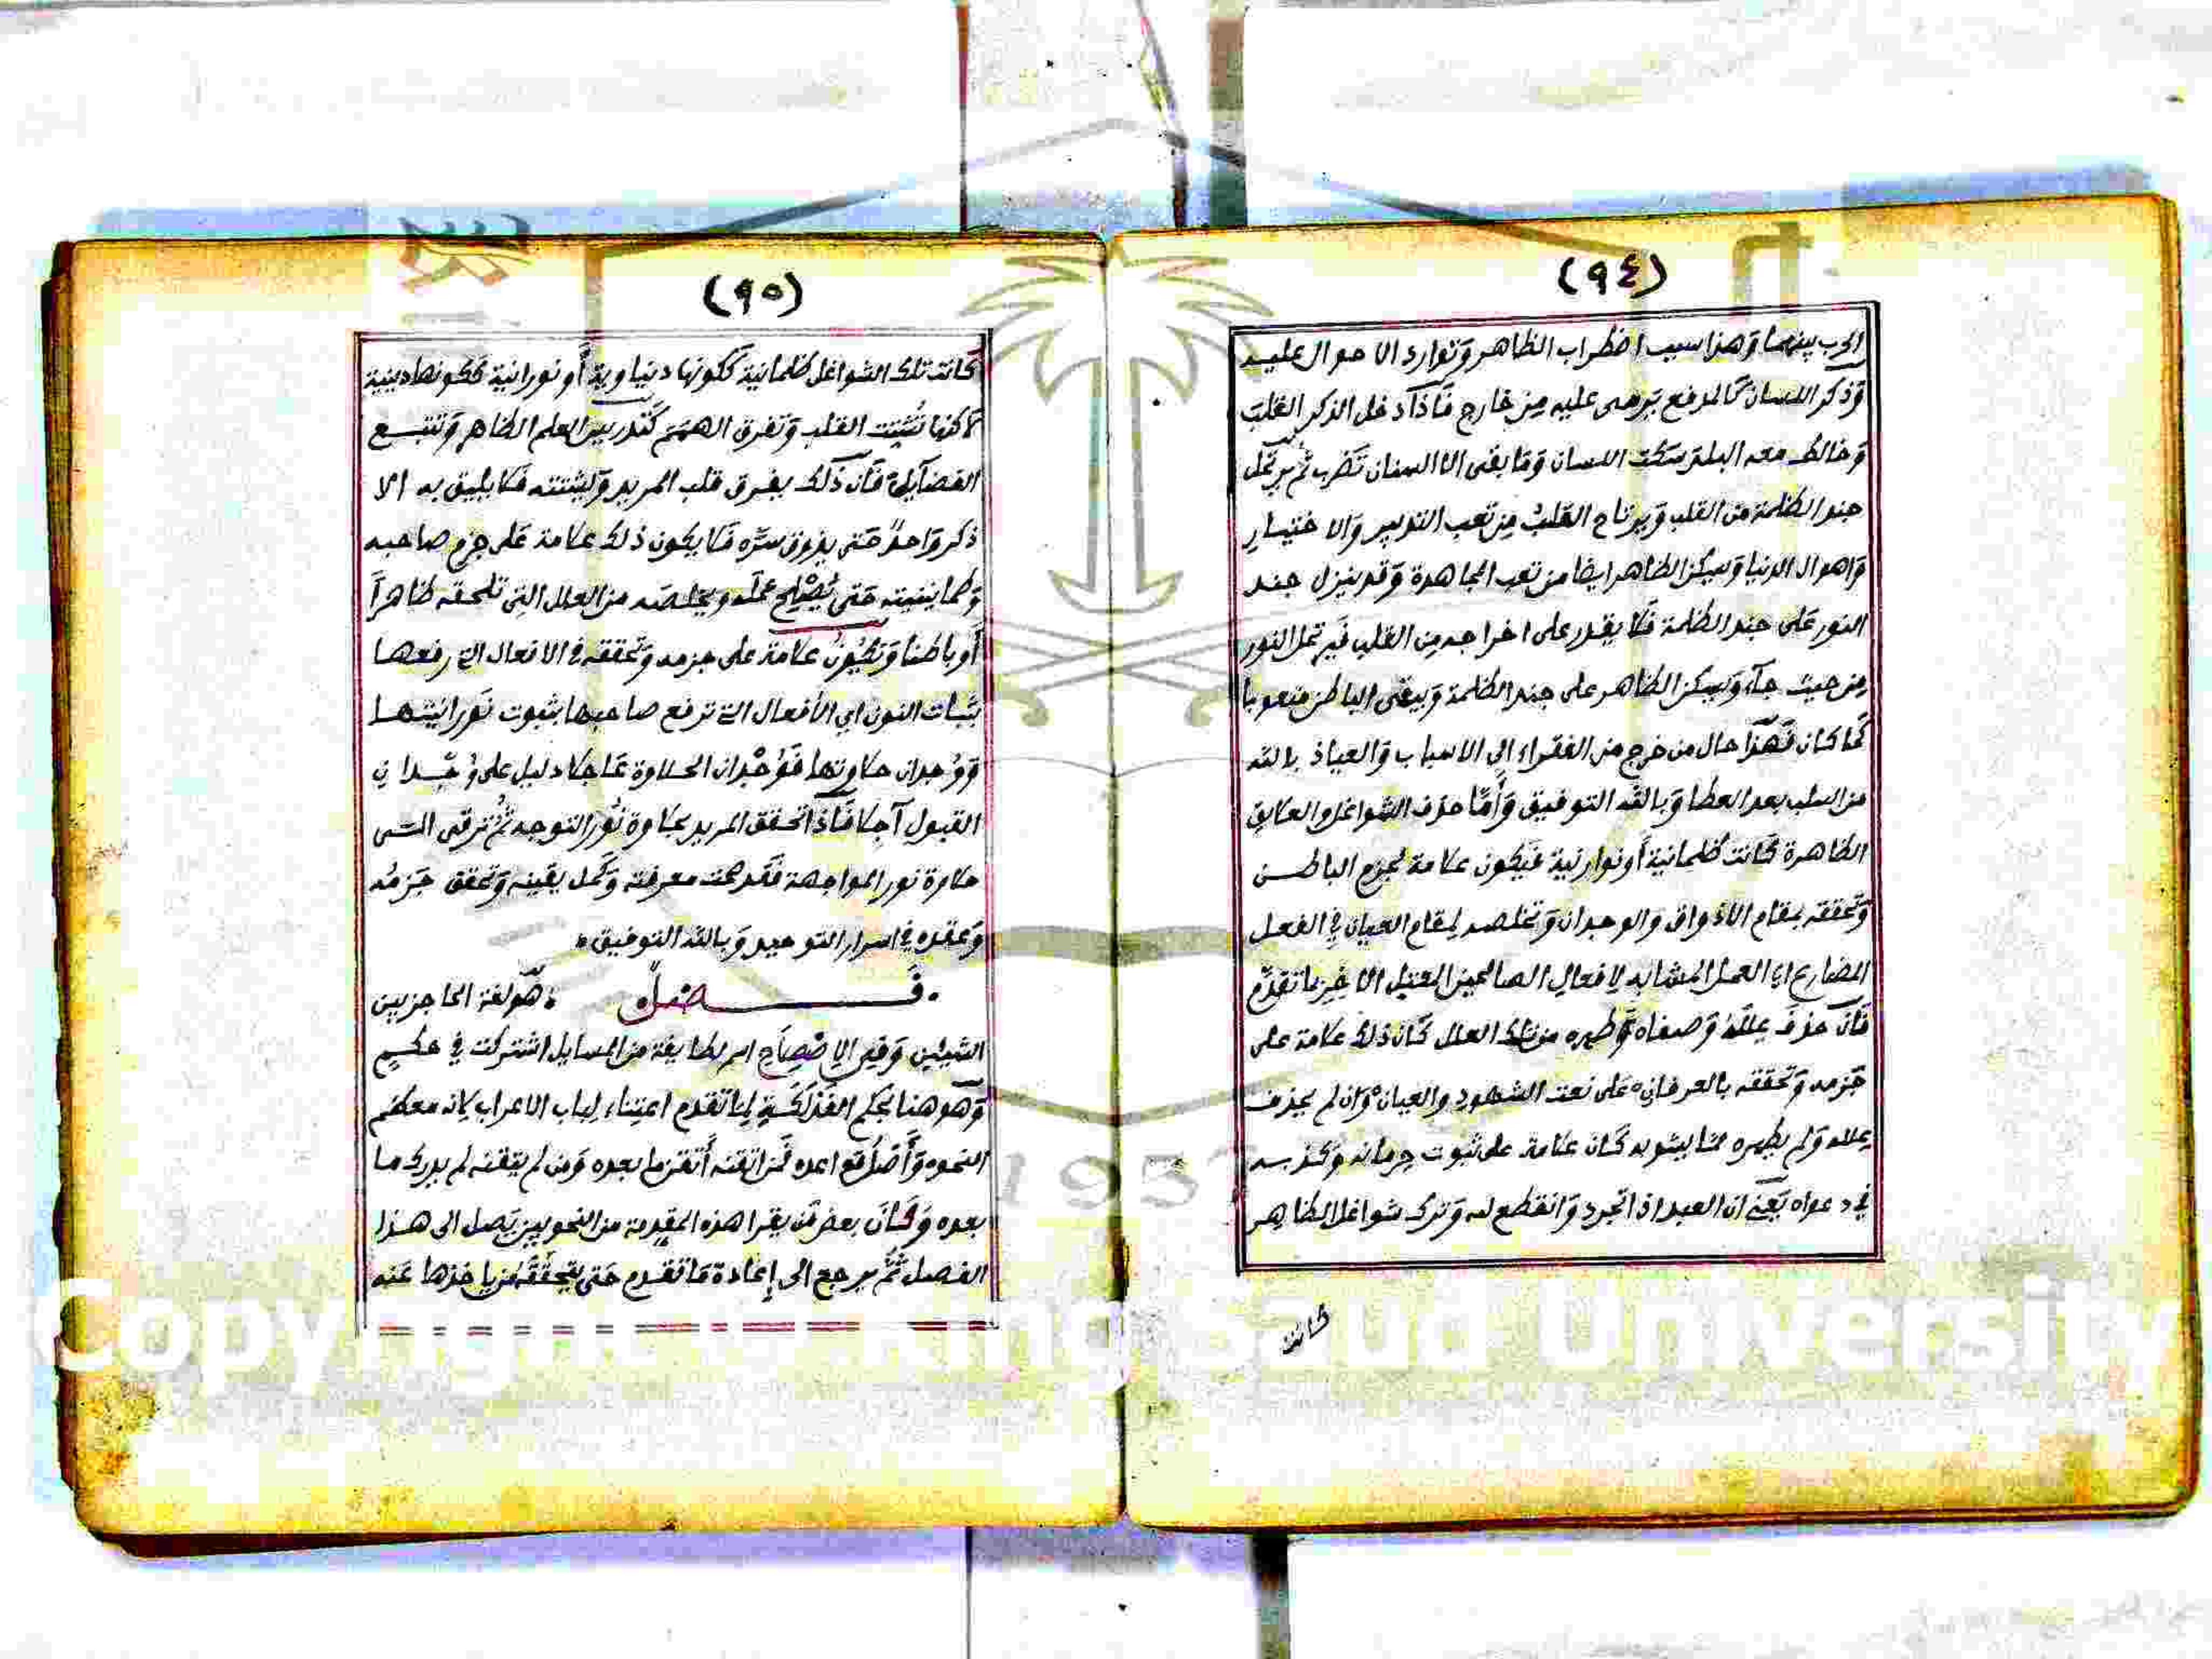 (٩٤)
الحرب بينهما وَهذا سبب اضطراب الظاهر وَتوارد الاحوال عليه
وَذكر اللسان كَالمدفع يَرمى عليه مِن خارج فَاذا دخل الذكر القلبَ
وَخالط معه سَكت اللسان وَمَا بقى الا السنان تَضرب ثُم يرتحل
جند الظلمة من القلب وَيرتاح القَلبُ مِن تعب التدبير وَالاختيار
وَاهوال الدنيا وَيسكن الظاهر ايضًا من تعب المجاهدة وَقد ينزل جند
النور عَلى جند الظلمة فَلا يقدر على اخراجه مِن القلب فَيرتحل النور
مِن حيث جآء وَيسكن الظاهر على جند الظلمة وَيبقى الباطن متعوبا
كَما كان فَهَذا حال من خرج من الفقراء الى الاسباب وَالعياذ بالله
من السلب بعد العطا وَبالله التوفيق وَأَمَّا حذف الشواغل والعلايق
الظاهرة كَانت ظلمانية أَو نوارنية فَيكون علامة لجزم الباطن
وَتحققه بمقام الاذواق وَالوجدان وَتخلصه لمقام العيان في الفعل
المضارع اى العمل المشابه لافعال الصالحين المعتل الاخِرِ بما تقدّم
فَان حذفَ عِللَهُ وَصفاه وَطهره من تلك العلل كَان ذلك علامة على
جَزمه وَتحققه بالعرفان عَلى نعت الشهود والعيان وَان لم يحذف
عِلله وَلم يطهره مما يشوبه كَان علامة على ثبوت حِرمانه وَكذبه
في دعواه يَعنى ان العبد اذا تجرد وَانقطع لله وَترك شواغل الظاهِر
كانت
(٩٥)
كَانت تلك الشواغل ظلمانية ككونها دنياوية أَو نورانية ككونها دينية
لاكنها تُشَتِّت القلب وَتفرق الهمَم كَتدريس العلم الظاهر وَتتبع
الفضآيل فَان ذَلك يفرق قلب المريد وَيشتته فَلا يليق به الا
ذكر وَاحدً حَتى يذوق سرَّه فَلا يكون ذلك علامة عَلى جزم صاحبه
وَطمانينته حَتى يُصْلِح عملَه ويخلصَه من العلل التى تلحقه ظاهراً
أَو باطنا وَتكُونُ علامة على جزمه وَتحققه في الافعال التى رفعها
بثبات النون اى الأفعال التى ترفع صاحبها بثبوت نَورانيتها
وَوُجدان حلاوتها فَوُجْدان الحلاوة عَاجلا دليل على وُجْدان
القبول آجلا فَاذَا تحقق المريد بحلاوة نُور التوجه ثُمَّ ترقى الى
حلاوة نور المواجهة فَقَد صحت معرفته وَكَمل يقينه وَتحقق جَزمُه
وَعقده في اسرار التوحيد وَبالله التوفيق
فَـصل هُوَ لغة الحاجز بين
الشيئين وَفي الاصْطِلَاح اسم لطايفة من المسايل اشتركت في حكمٍ
وَهو هنا بحكم الفَذلَكَةِ لِما تقدم اعتناء لِباب الاعراب لانه معظم
النحو وَأَصْلُ قواعده فَمن اتقنه أَتقن ما بعده وَمن لم يتقنه لم يدرك ما
بعده وَكَانَ بعض مَن يقرا هذه المقدمة من النحويين يَصل الى هذا
الفصل ثُمَّ يرجع الى إِعَادة مَا تقدم حَتى يتحققَه مَن ياخذها عَنه
Copyright © King Saud University
1957